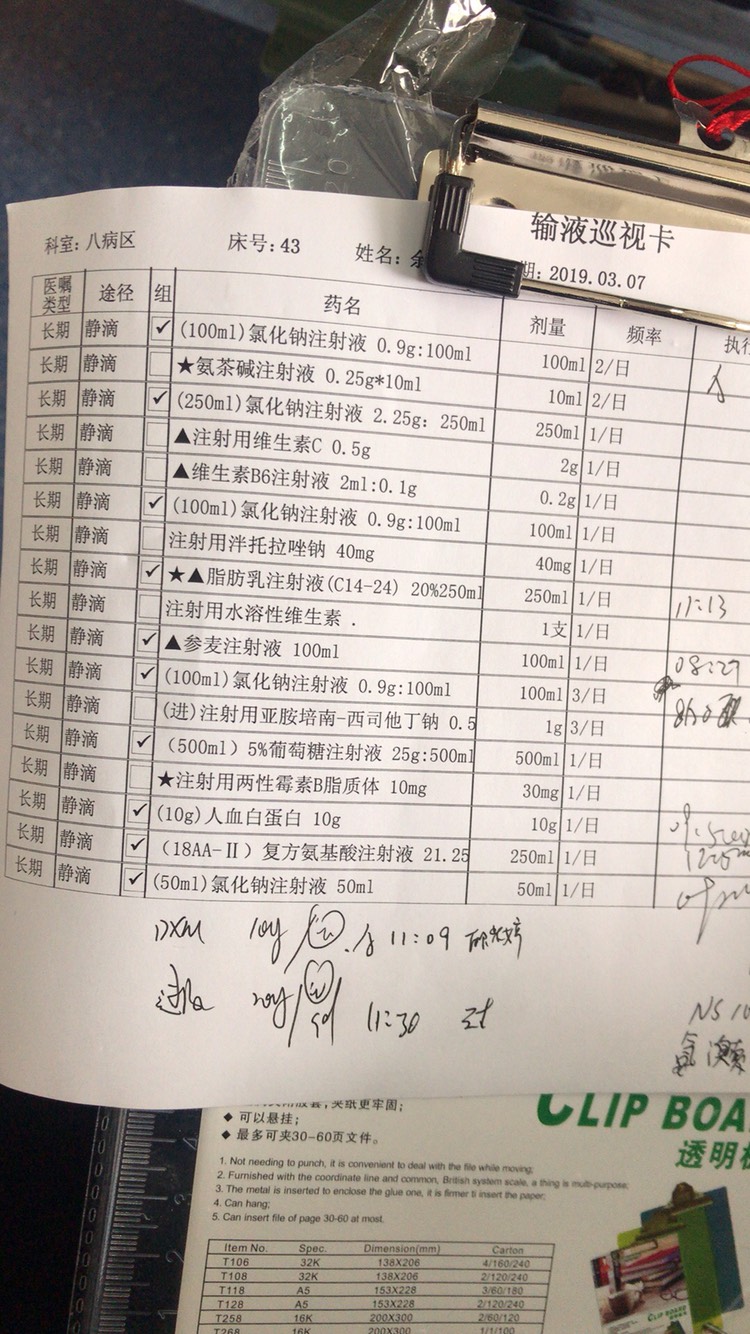 输液巡视卡
科室:八病区 床号:43 姓名: 期:2019.03.07
医嘱类型 途径 组 药名 剂量 频率 执行
长期 静滴 ✓ (100ml)氯化钠注射液 0.9g:100ml 100ml 2/日
长期 静滴 ★氨茶碱注射液 0.25g*10ml 10ml 2/日
长期 静滴 ✓ (250ml)氯化钠注射液 2.25g: 250ml 250ml 1/日
长期 静滴 ▲注射用维生素C 0.5g 2g 1/日
长期 静滴 ▲维生素B6注射液 2ml:0.1g 0.2g 1/日
长期 静滴 ✓ (100ml)氯化钠注射液 0.9g:100ml 100ml 1/日
长期 静滴 注射用泮托拉唑钠 40mg 40mg 1/日
长期 静滴 ✓ ★▲脂肪乳注射液(C14-24) 20%250ml 250ml 1/日 11:13
长期 静滴 注射用水溶性维生素 . 1支 1/日
长期 静滴 ✓ ▲参麦注射液 100ml 100ml 1/日 08:27
长期 静滴 ✓ (100ml)氯化钠注射液 0.9g:100ml 100ml 3/日
长期 静滴 (进)注射用亚胺培南-西司他丁钠 0.5 1g 3/日
长期 静滴 ✓ (500ml) 5%葡萄糖注射液 25g:500ml 500ml 1/日
长期 静滴 ★注射用两性霉素B脂质体 10mg 30mg 1/日
长期 静滴 ✓ (10g)人血白蛋白 10g 10g 1/日
长期 静滴 ✓ (18AA-Ⅱ) 复方氨基酸注射液 21.25 250ml 1/日
长期 静滴 ✓ (50ml)氯化钠注射液 50ml 50ml 1/日
DXM 11:09
11:30
NS 10
夹纸更牢固;
◆ 可以悬挂;
◆ 最多可夹30-60页文件。
CLIP BOA
透明
1. Not needing to punch, it is convenient to deal with the file while moving;
2. Furnished with the coordinate line and common, British system scale, a thing is multi-purpose;
3. The metal is inserted to enclose the glue one, it is firmer ti insert the paper;
4. Can hang;
5. Can insert file of page 30-60 at most.
Item No. Spec. Dimension(mm) Carton
T106 32K 138X206 4/160/240
T108 32K 138X206 2/120/240
T118 A5 153X228 3/60/180
T128 A5 153X228 2/120/240
T258 16K 200X300 2/60/120
T268 16K 200X300 1/1/100
CLIP BOARD